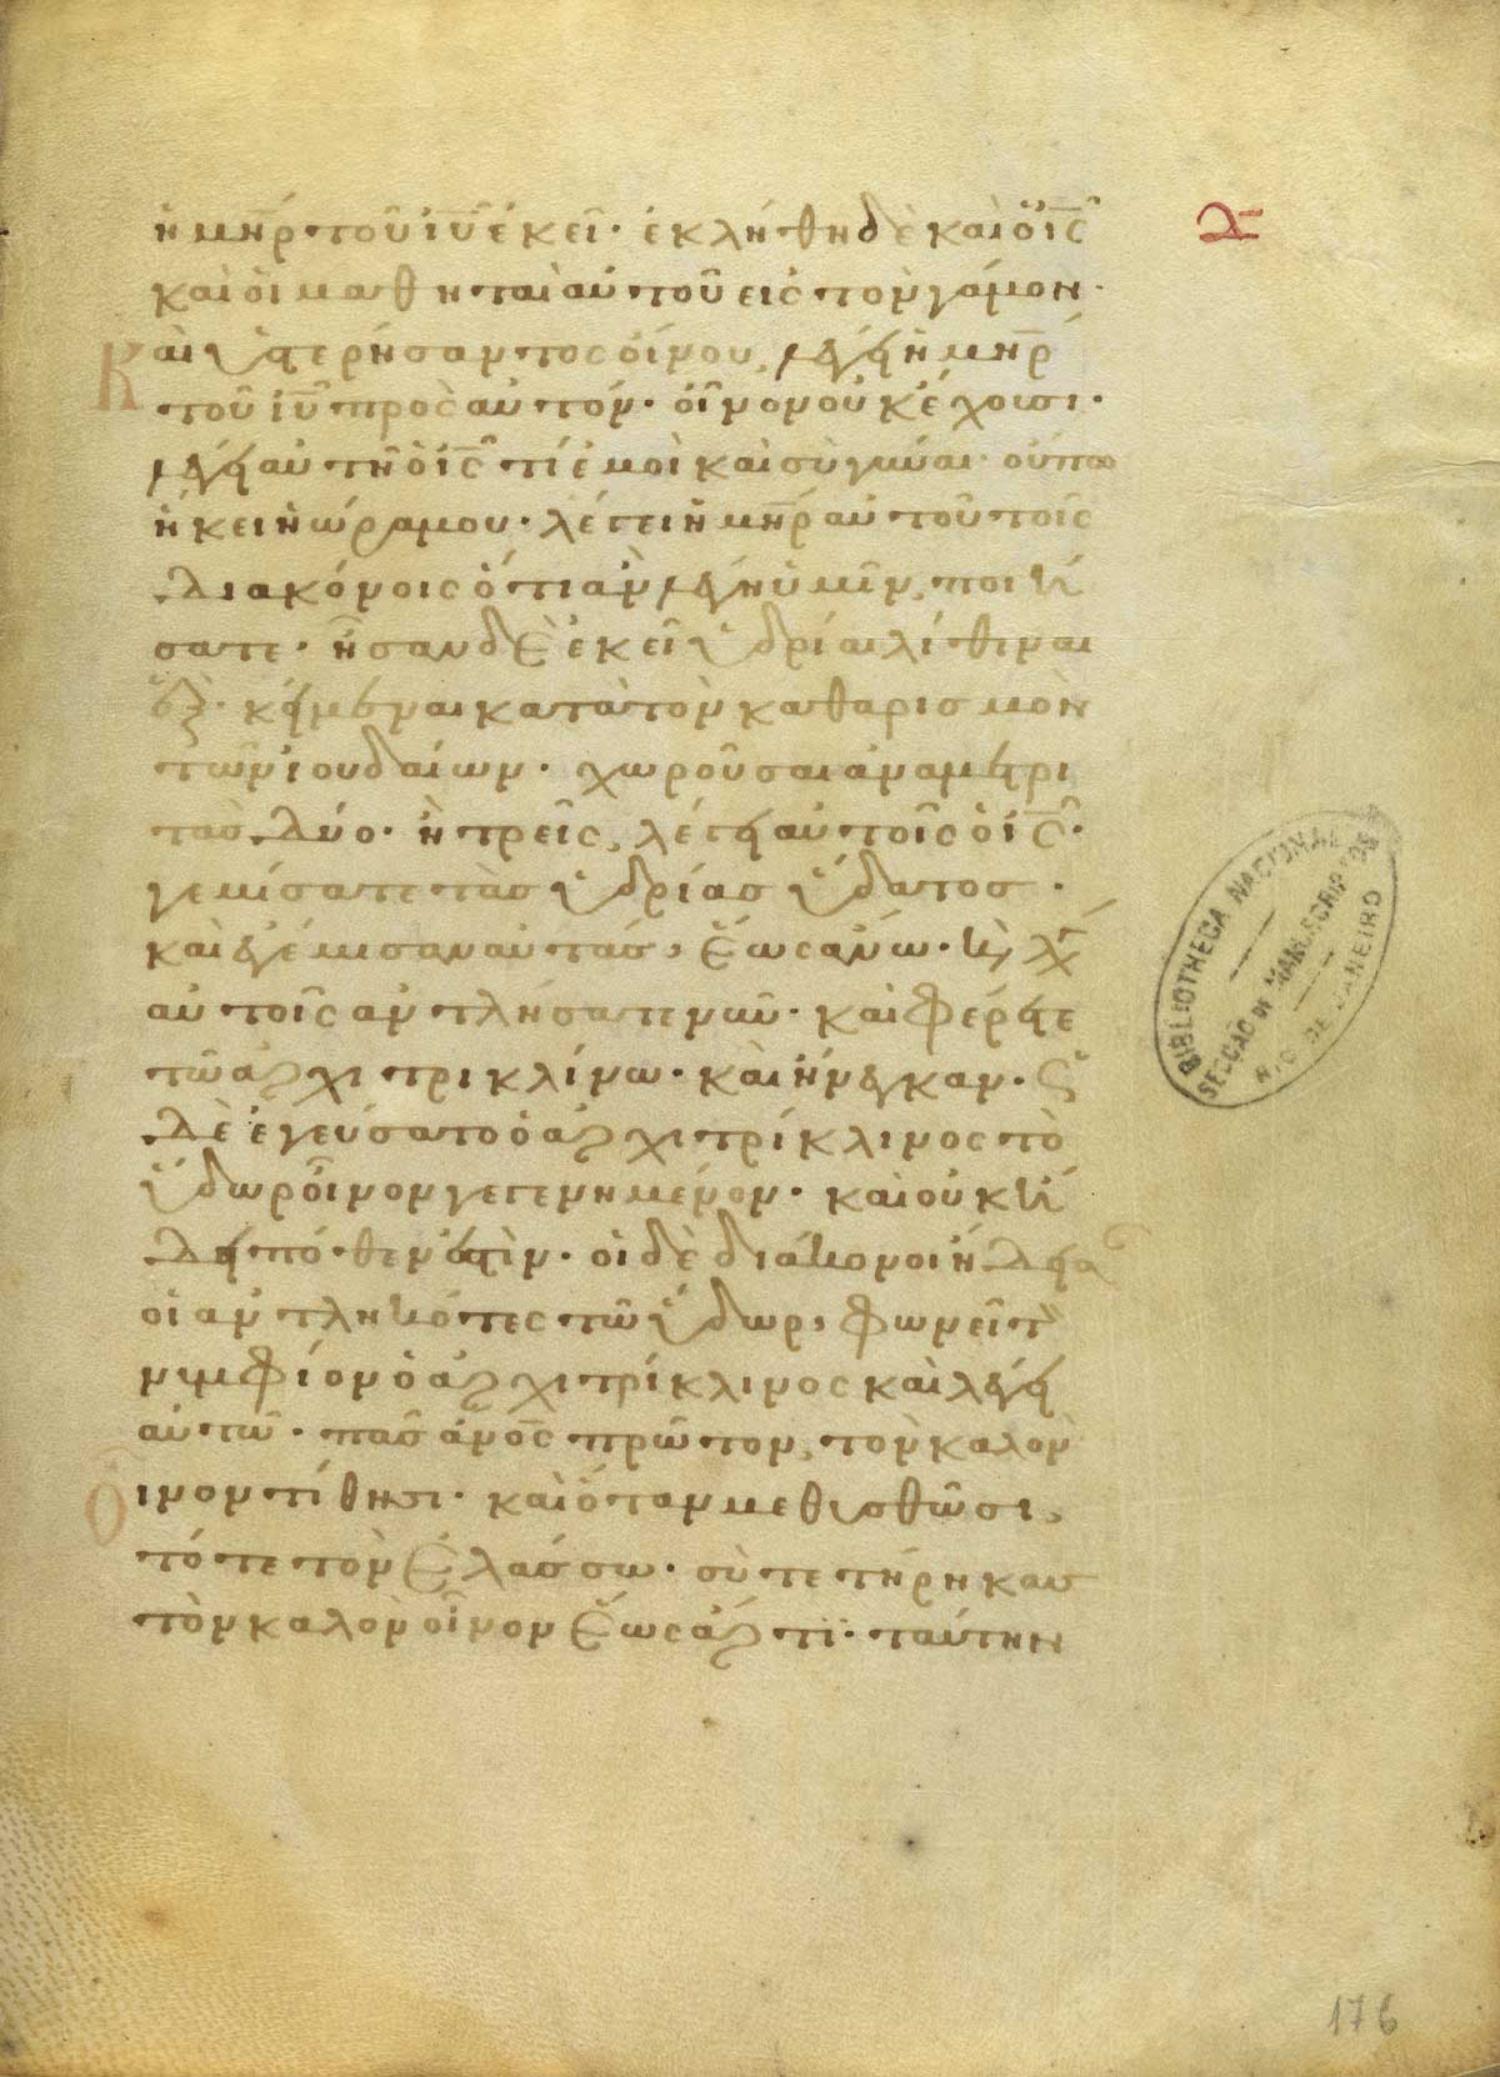 ἡ μη̅ρ τοῦ ἰυ̅ ἐκεῖ· ἐκλήθη δὲ καὶ ὁ ἰς̅
καὶ οἱ μαθηταὶ αὐτοῦ εἰς τὸν γάμον·
Καὶ ὑστερήσαντος οἴνου, λέγει ἡ μη̅ρ
τοῦ ἰυ̅ πρὸς αὐτόν· οἶνον οὐκ ἔχουσι·
λέγει αὐτῆ ὁ ἰς̅ τί ἐμοὶ καὶ σὺ γύναι· οὔπω
ἥκει ἡ ὥρα μου· λέγει ἡ μη̅ρ αὐτοῦ τοῖς
διακόνοις ὅτι ἂν λέγη ὑμῖν, ποιή
σατε· ἦσαν δὲ ἐκεῖ ὑδρίαι λίθιναι
ἓξ· κείμεναι κατὰ τὸν καθαρισμὸν
τῶν ἰουδαίων· χωροῦσαι ἀνα μετρι
τὰς δύο· ἢ τρεῖς, λέγει αὐτοῖς ὁ ἰς̅·
γεμίσατε τὰς ὑδρίας ὕδατος·
καὶ ἐγέμισαν αὐτάς, ἕως ἄνω· κ λγ
αὐτοῖς ἀντλήσατε νῦν· καὶ φέρετε
τῶ ἀρχιτρικλίνω· καὶ ἤνεγκαν· ὡς
δὲ ἐγεύσατο ὁ ἀρχιτρίκλινος τὸ
ὕδωρ οἶνον γεγενημένον· καὶ οὐκ ἤ
δει πόθεν ἐστὶν· οἱ δὲ διάκονοι ἤδεισα
οἱ ἀντληκότες τῶ ὕδωρ, φωνεῖ τ
νυμφίον ὁ ἀρχιτρίκλινος καὶ λέγει
αὐτῶ· πᾶς ἄνο̅ς πρῶτον, τὸν καλὸν
Οἶνον τίθησι· καὶ ὅταν μεθυσθῶσι,
τότε τὸν ἐλάσσω· σὺ τετήρηκας
τὸν καλὸν οἶνον ἕως ἄρτι· ταύτην
BIBLIOTHECA NACIONAL
SECÇÃO DE MANUSCRIPTOS
RIO DE JANEIRO
176